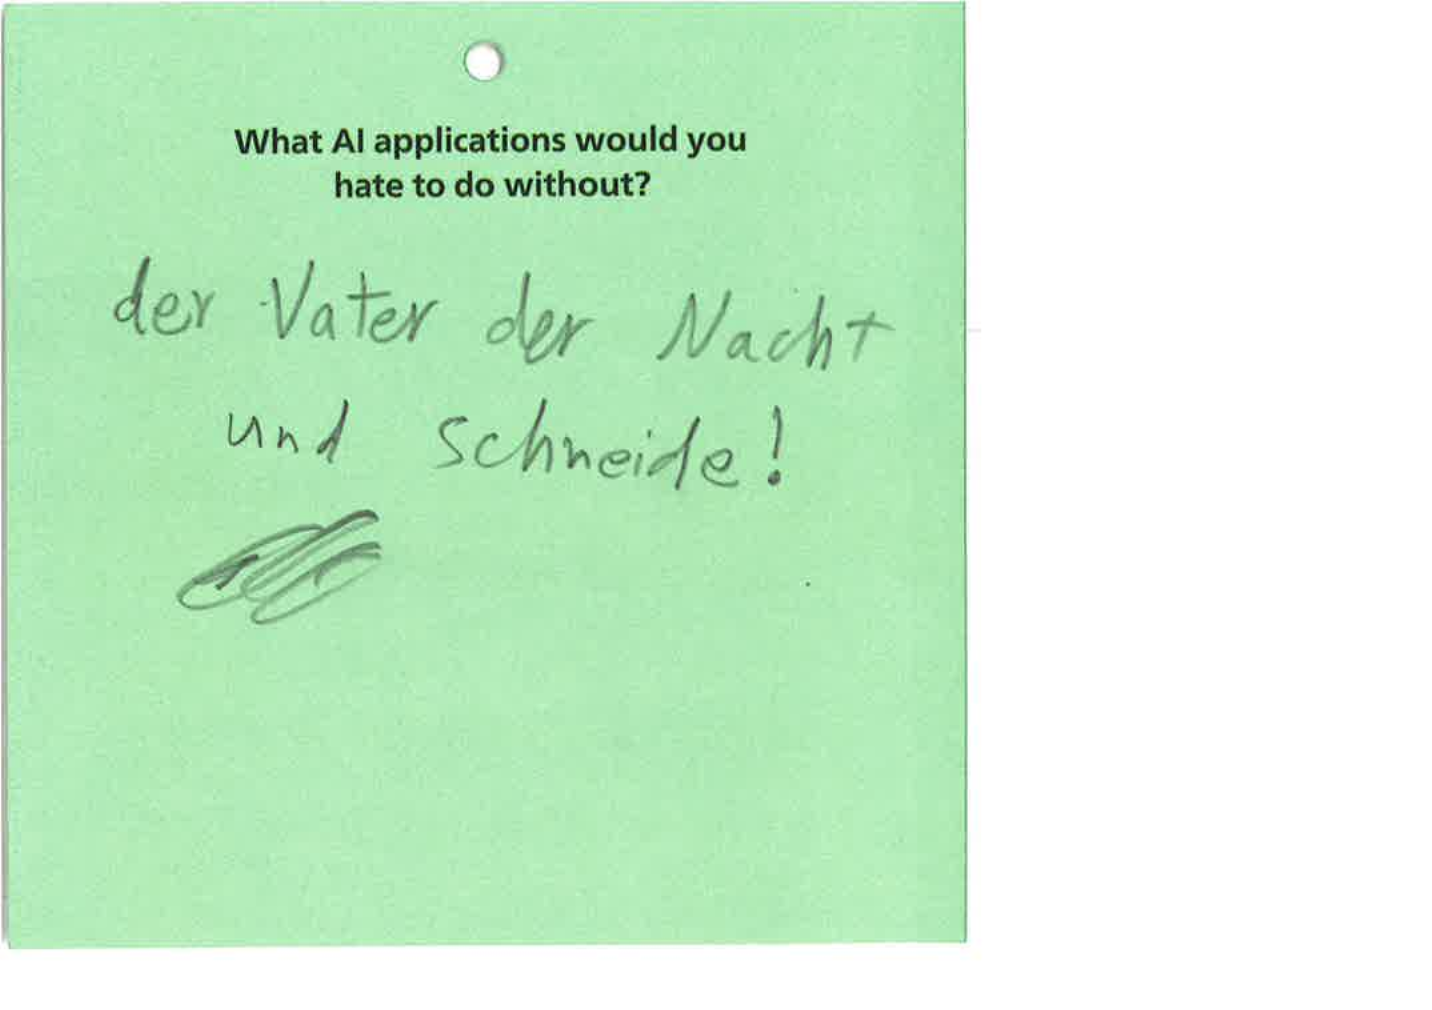 What AI applications would you
hate to do without?
der Vater der Nacht
und schneide!